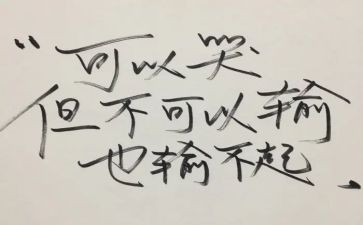 “可以哭、
但不可以输
也输不起”